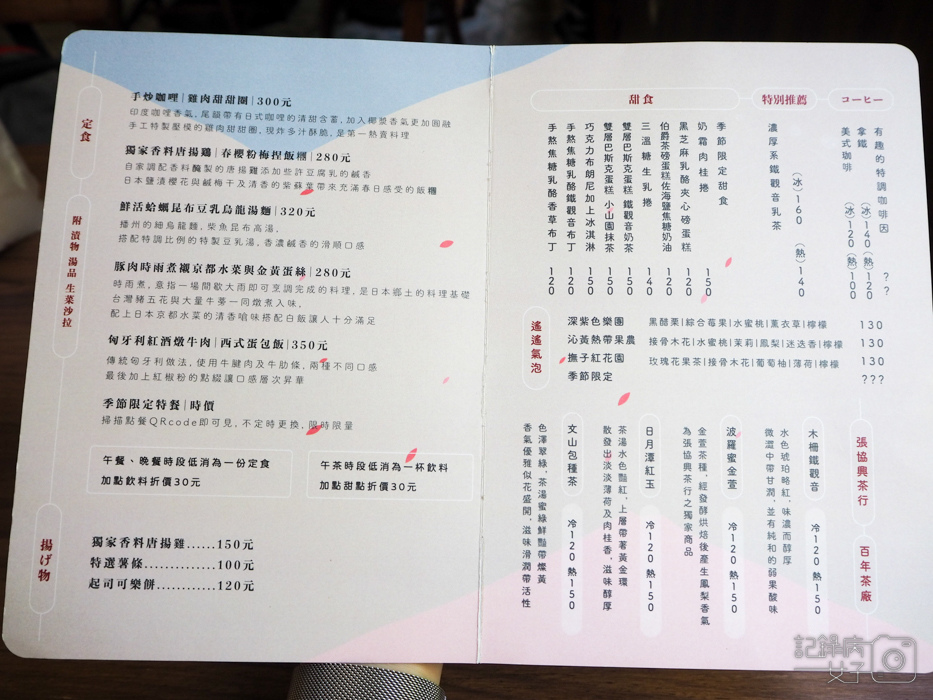 定食
附 漬物 湯品 生菜沙拉
手炒咖哩|雞肉甜甜圈|300元
印度咖哩香氣,尾韻帶有日式咖哩的清甜含蓄,加入椰漿香氣更加圓融
手工特製壓模的雞肉甜甜圈,現炸多汁酥脆,是第一熱賣料理
獨家香料唐揚鷄|春櫻粉梅捏飯糰|280元
自家調配香料醃製的唐揚雞添加些許豆腐乳的鹹香
日本鹽漬櫻花與鹹梅干及清香的紫蘇葉帶來充滿春日感受的飯糰
鮮活蛤蠣昆布豆乳烏龍湯麵|320元
播州的細烏龍麵,柴魚昆布高湯,
搭配特調比例的特製豆乳湯,香濃鹹香的滑順口感
豚肉時雨煮襯京都水菜與金黃蛋絲|280元
時雨煮,意指一場間歇大雨即可烹調完成的料理,是日本鄉土的料理基礎
台灣豬五花與大量牛蒡一同燉煮入味,
配上日本京都水菜的清香嗆味搭配白飯讓人十分滿足
匈牙利紅酒燉牛肉|西式蛋包飯|350元
傳統匈牙利做法,使用牛腱肉及牛肋條,兩種不同口感
最後加上紅椒粉的點綴讓口感層次昇華
季節限定特餐|時價
掃描點餐QRcode即可見,不定時更換,限時限量
午餐、晚餐時段低消為一份定食
加點飲料折價30元
午茶時段低消為一杯飲料
加點甜點折價30元
揚げ物
獨家香料唐揚雞......150元
特選薯條............100元
起司可樂餅............120元
コーヒー
有趣的特調咖啡因 ??
拿鐵 (冰)140 (熱)120
美式咖啡 (冰)120 (熱)100
特別推薦
濃厚系鐵觀音乳茶
(冰)160 (熱)140
甜食
季節限定甜食
奶霜肉桂捲 150
黑芝麻乳酪夾心磅蛋糕 120
伯爵茶磅蛋糕佐海鹽焦糖奶油 120
三溫糖生乳捲 140
雙層巴斯克蛋糕 鐵觀音奶茶 150
雙層巴斯克蛋糕 小山園抹茶 150
巧克力布朗尼加上冰淇淋 150
手熬焦糖乳酪鐵觀音布丁 120
手熬焦糖乳酪香草布丁 120
遙遙氣泡
深紫色樂園 黑醋栗|綜合莓果|水蜜桃|薰衣草|檸檬 130
沁黃熱帶果農 接骨木花|水蜜桃|茉莉|鳳梨|迷迭香|檸檬 130
撫子紅花園 玫瑰花果茶|接骨木花|葡萄柚|薄荷|檸檬 130
季節限定 ???
張協興茶行
百年茶廠
木柵鐵觀音 冷120 熱150
水色琥珀略紅,味濃而醇厚
微澀中帶甘潤,並有純和的弱果酸味
波羅蜜金萱 冷120 熱150
金萱茶種,經發酵烘焙後產生鳳梨香氣
為張協興茶行之獨家商品
日月潭紅玉 冷120 熱150
茶湯水色豔紅,上層帶著黃金環
散發出淡淡薄荷及肉桂香,滋味醇厚
文山包種茶 冷120 熱150
色澤翠綠,茶湯蜜綠鮮豔帶燦黃
香氣優雅似花盛開,滋味滑潤帶活性
記錄病女子